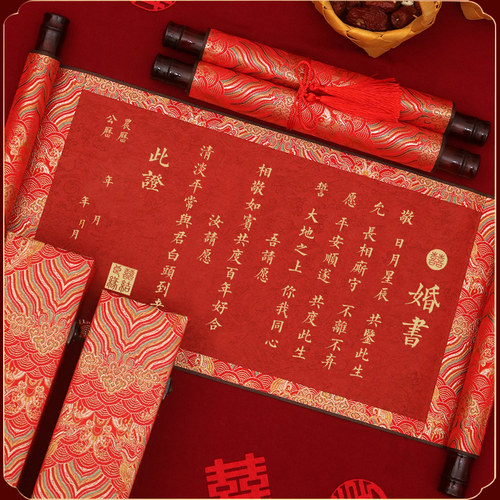 婚書
敬 日月星辰 共鑒此生
允 長相廝守 不離不弃
愿 平安順遂 共度此生
誓 大地之上 你我同心
吾請愿
相敬如賓共度百年好合
汝請愿
清淡平常與君白頭到老
此證
農曆 年 月
公曆 年 月
囍